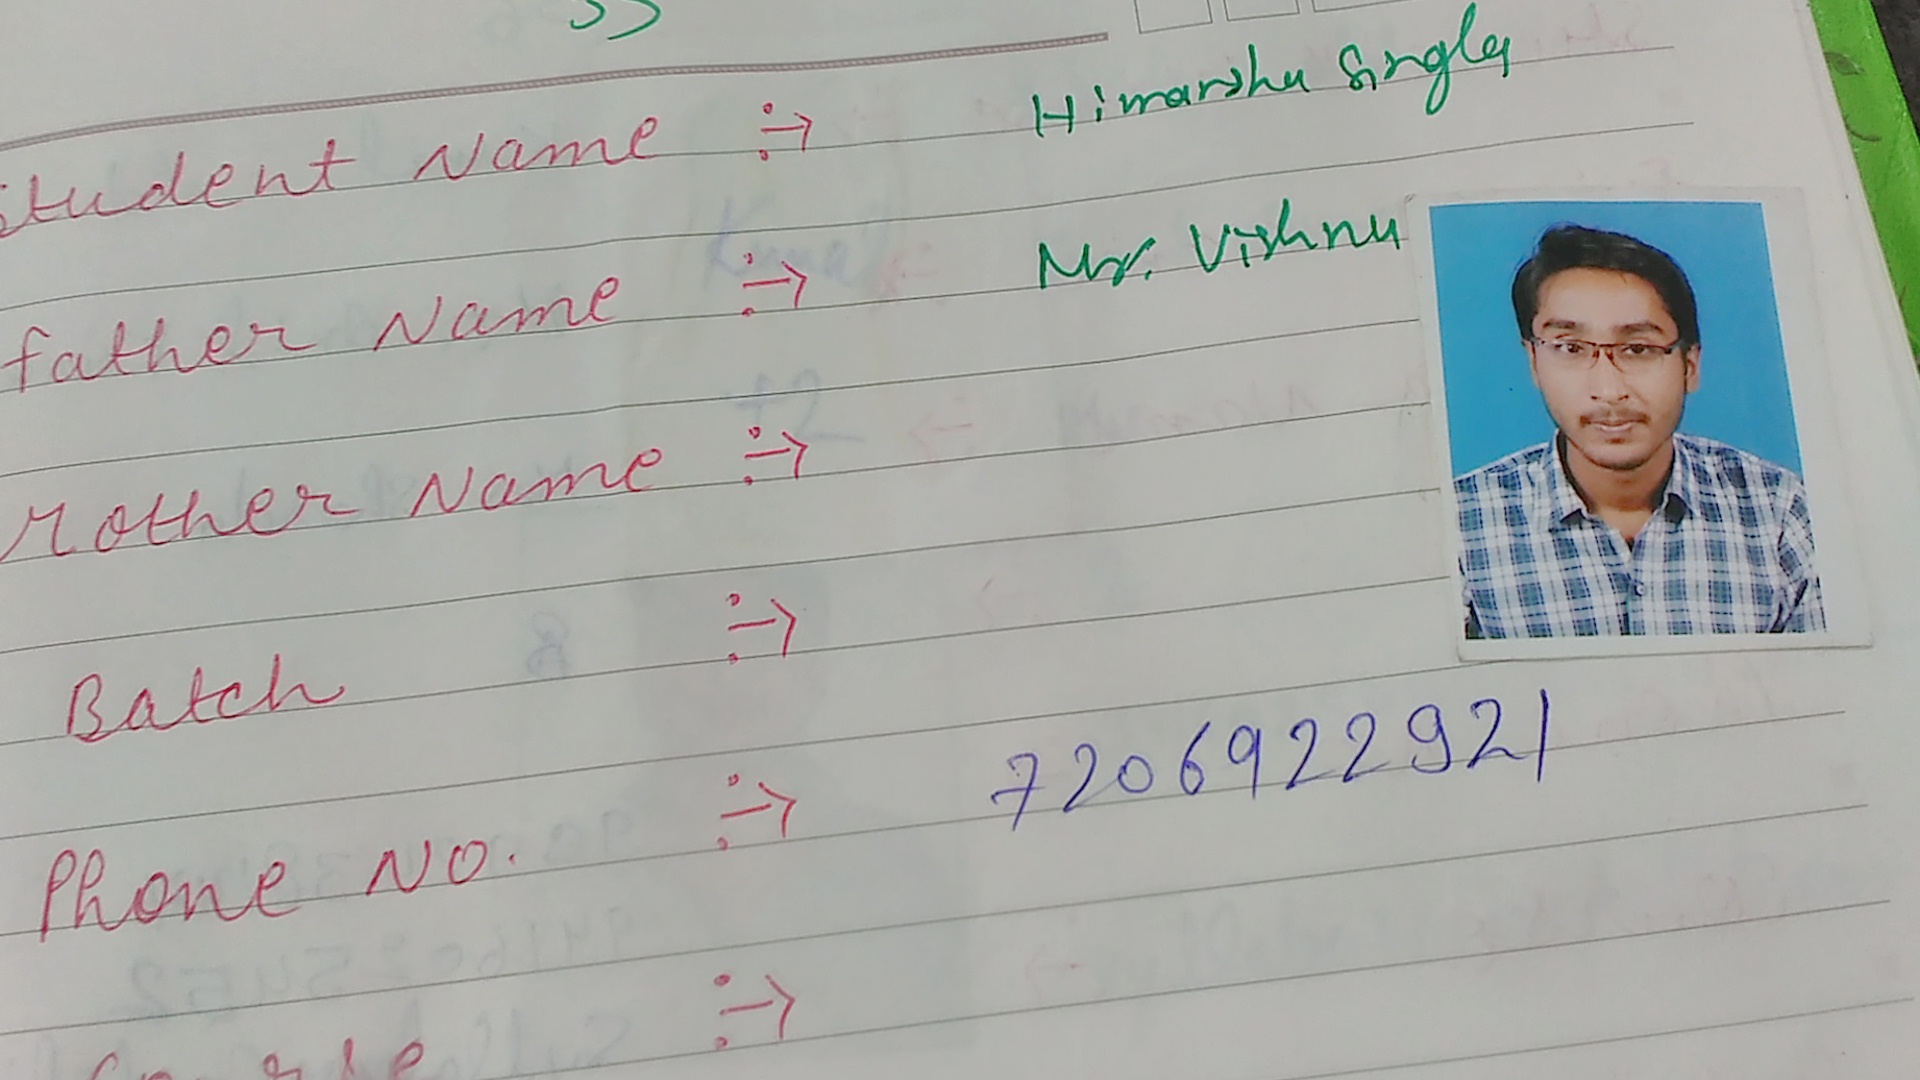 Student Name :→ Himanshu Singla
Father Name :→ Mr. Vishnu
Mother Name :→
Batch :→
Phone No. :→ 7206922921
Course :→